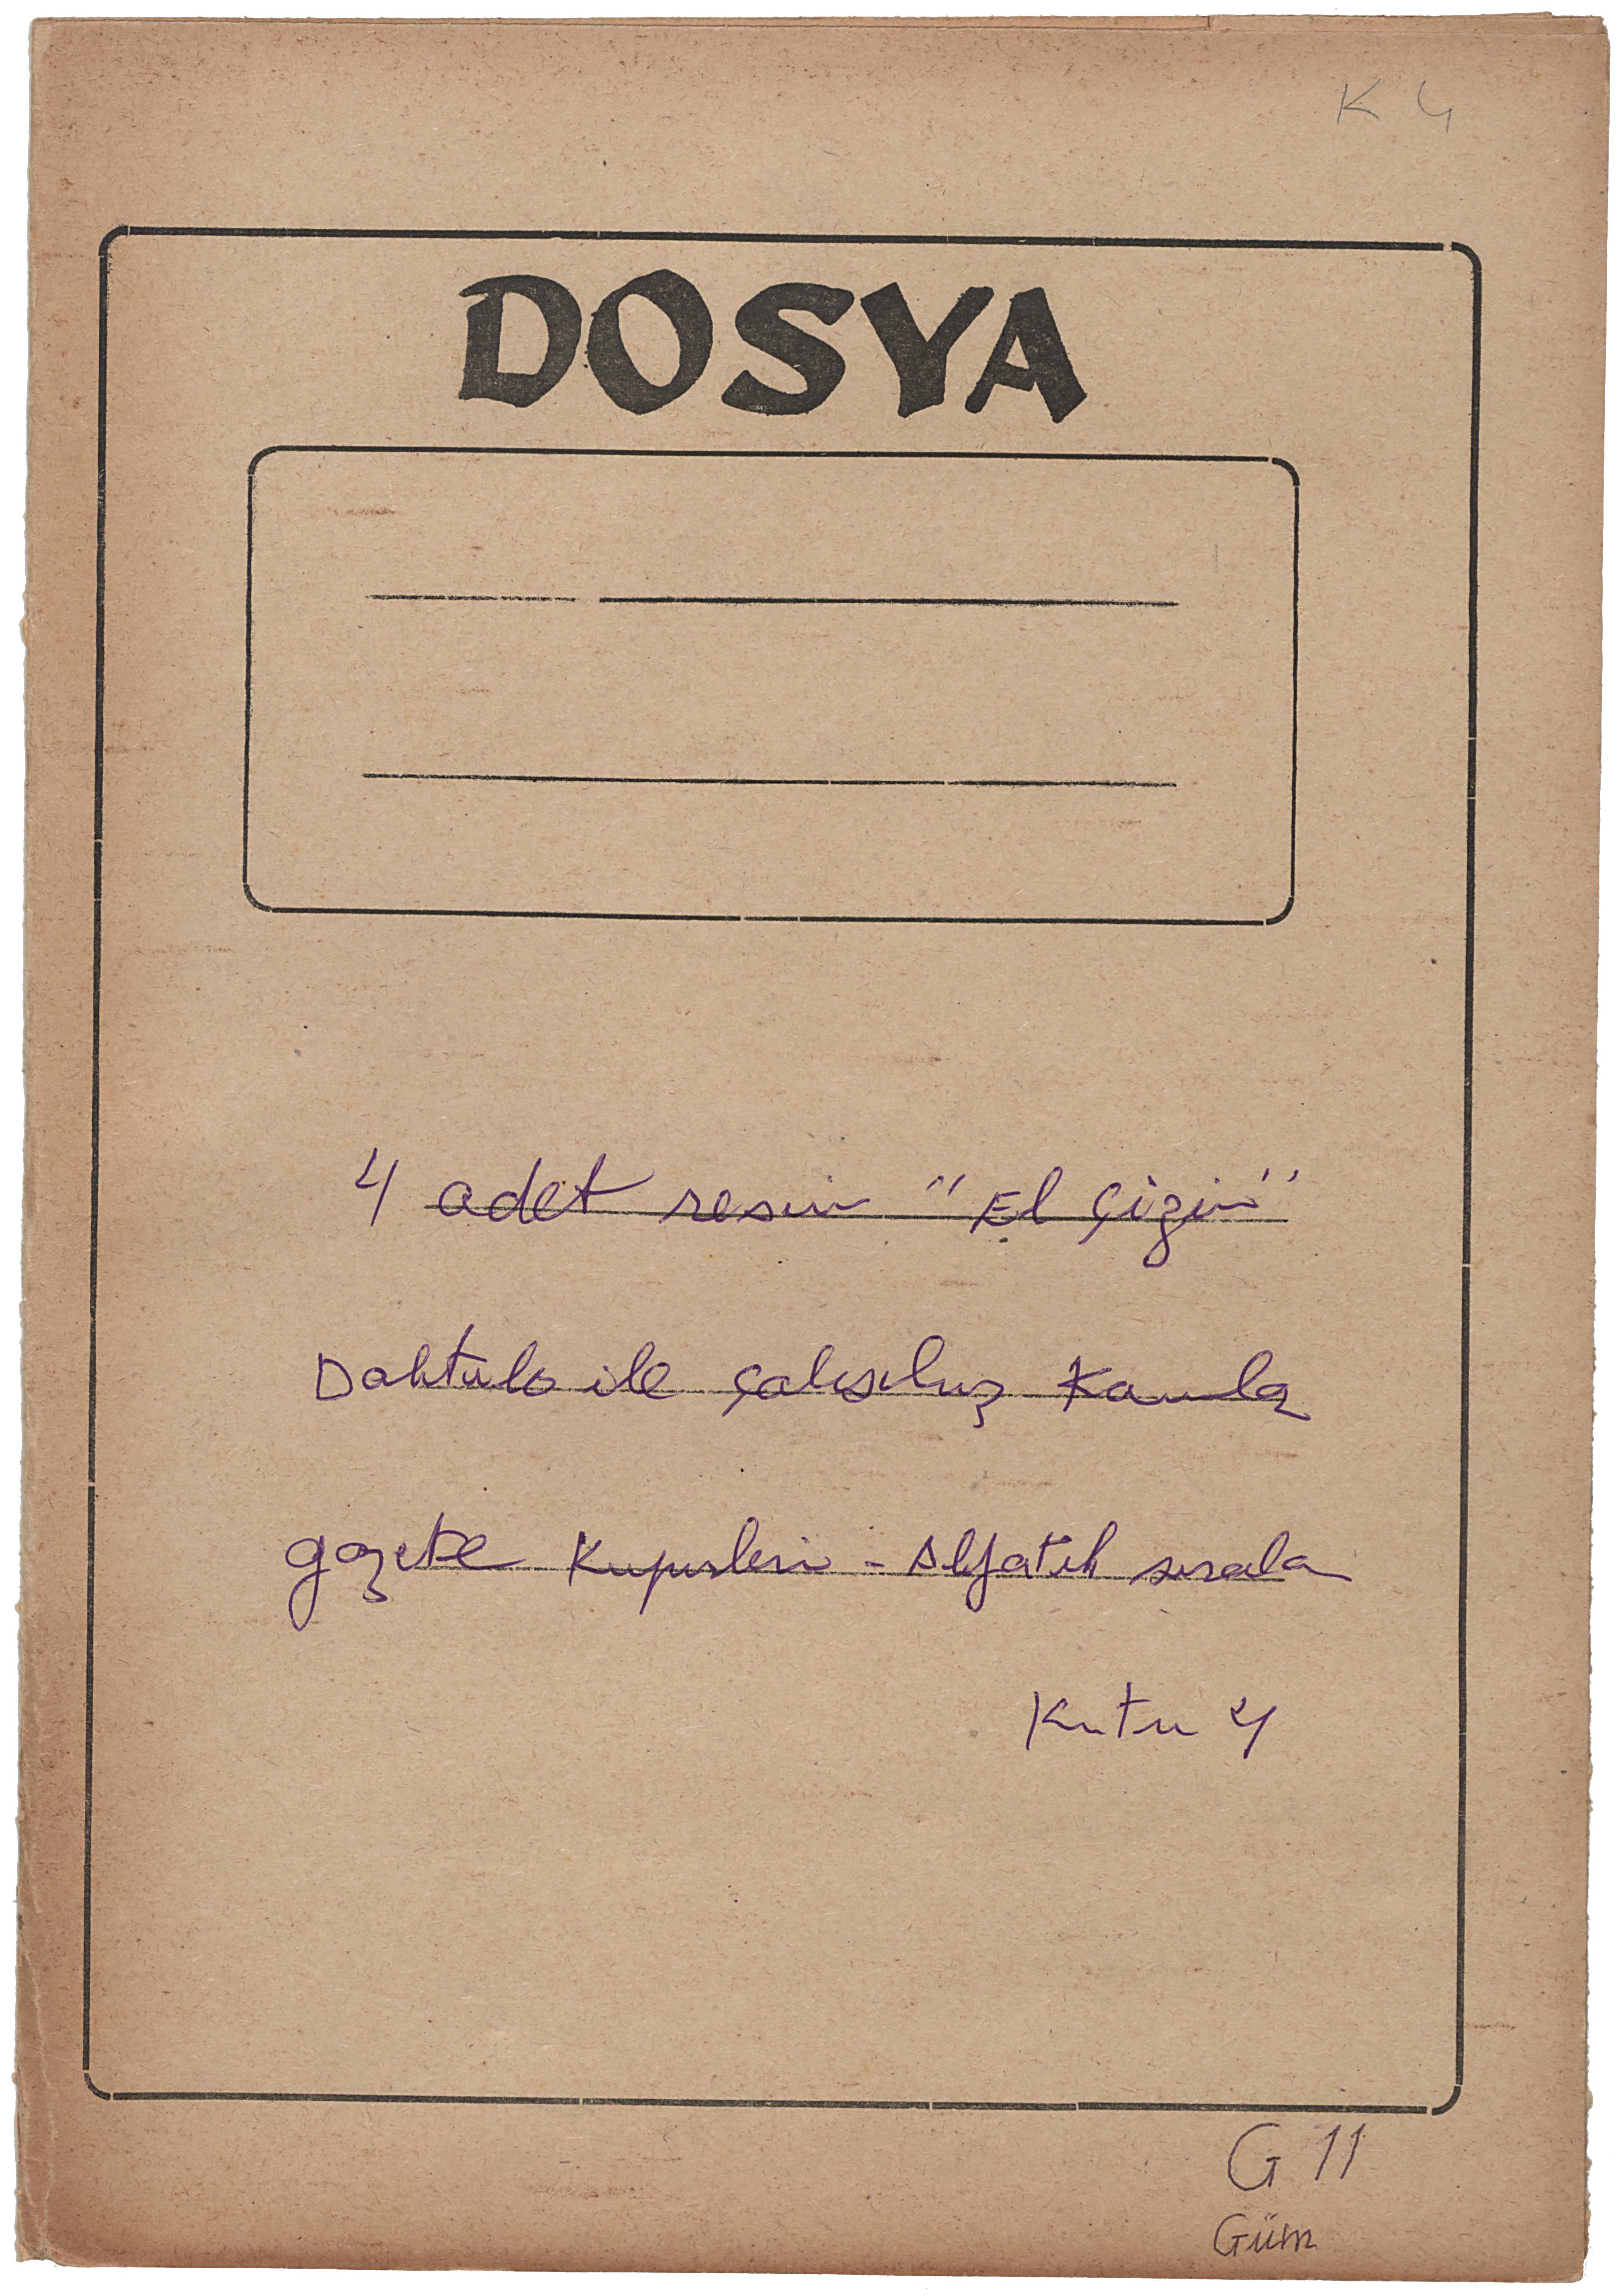 K 4
DOSYA
4 adet resim "El çizim"
Daktilo ile çalışılmış
gazete Kupürleri - Alfatik sırala
Kutu 4
G 11
Güm